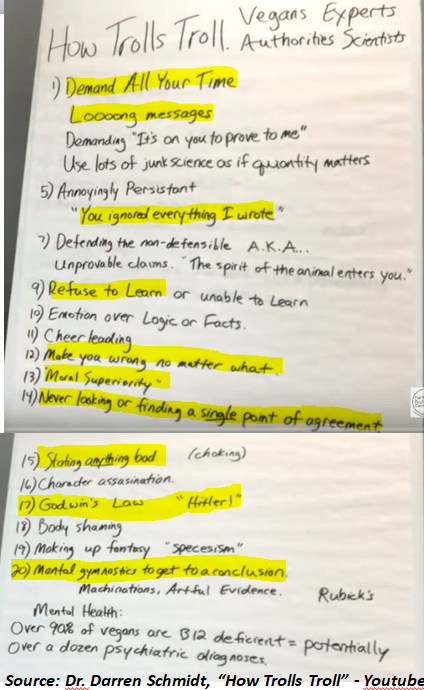 How Trolls Troll. Vegans Experts
Authorities Scientists
1) Demand All Your Time
Loooong messages
Demanding "It's on you to prove to me"
Use lots of junk science as if quantity matters
5) Annoyingly Persistant
"You ignored everything I wrote"
7) Defending the non-defensible A.K.A...
Unprovable claims. "The spirit of the animal enters you."
9) Refuse to Learn or unable to Learn
10) Emotion over Logic or Facts.
11) Cheerleading
12) Make you wrong no matter what.
13) "Moral Superiority"
14) Never looking or finding a single point of agreement
15) Stating anything bad (choking)
16) Character assasination.
17) Godwin's Law "Hitler!"
18) Body shaming
19) Making up fantasy "specesism"
20) Mental gymnastics to get to a conclusion.
Machinations, Artful Evidence. Rubick's
Mental Health:
Over 90% of vegans are B12 deficient = potentially
Over a dozen psychiatric diagnoses.
Source: Dr. Darren Schmidt, "How Trolls Troll" - Youtube